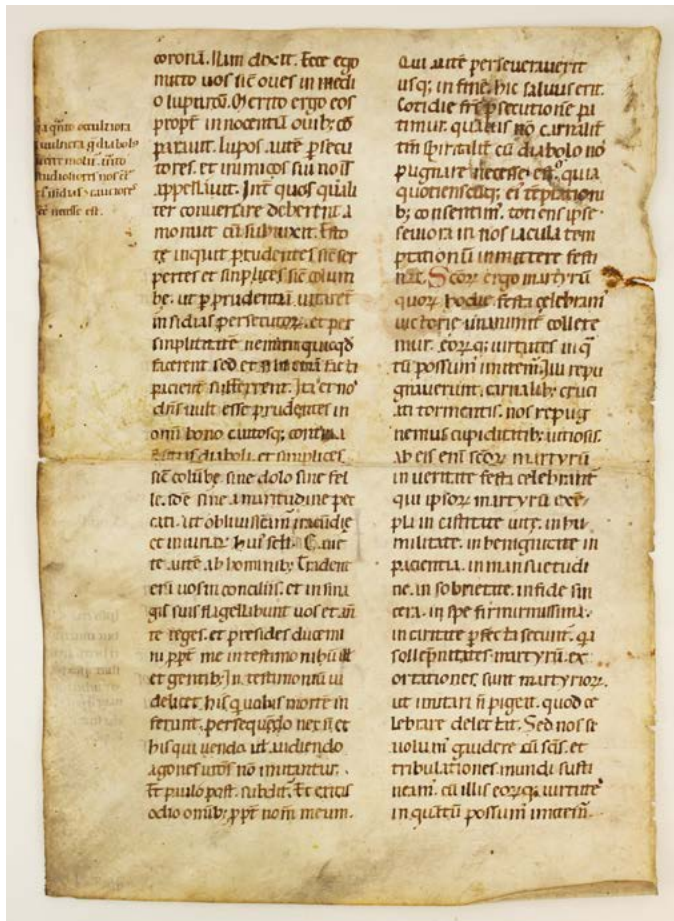 coronā. Nam dixit. Ecce ego
mitto uos sic̄ oues in medi
o luporū. Merito ergo eos
propt̄ innocentiā ouib;
parauit. lupos autē ꝑsecu
tores. et inimicos sui noīs
appellauit. Int̄ quos quali
ter conuersare deberent a
monuit cū subiunxit. Esto
te inquit prudentes sic̄ ser
pentes et simplices sic̄ colum
be. ut ꝑ prudentiā uitarēt
insidias persecutoꝝ. et per
simplicitatē nemini quicqd
facerent sed et
picient sufferrent. Ita et nos
dn̄s uult esse prudentes in
om̄i bono cautosq; contra
diaboli. et simplices
sic̄ colūbe. sine dolo sine fel
le. idē sine amaritudine pec
cati. ut obliuiscam̄ iracūdie
et iniuriaꝝ hui' sc̄li. Caue
te autē ab hominib; Tradent
enī uos in conciliis. et in sina
gis suis flagellabunt uos et an̄
te reges. et presides ducemi
ni ꝓpt̄ me in testimoniū ill
et gentib; In testimoniū ui
delicet his q̄ uobis mortē in
ferunt. persequendo nex n̄ et
his qui uendo. uł audiendo
agones uros nō imitantur.
Et paulo post. subdit. Et eritis
odio omīb; ꝓpt̄ nom̄ meum.
qa q̄nto occultiora
uulnera q̄ diabol
molit̄. tāto
studiosiores nos ēē
insidias cauciores
ēē necesse est.
Qui autē perseuerauerit
usq; in finē. hic saluus erit.
Cotidie fr̄s ꝑsecutiones pa
timur. quibus nō carnalit̄
tm̄ spiritalit̄ cū diabolo nos
pugnare necesse est. quia
quotienscūq; ei' tēptationi
b; consentim'. totiens ipse
seuiora in nos iacula tem
ptationū inmittere festi
nat. Sc̄oꝝ ergo martyrū
quoꝝ hodie festa celebram'
uictorie unanimit̄ collete
mur. eoꝝq; uirtutes in q̄
tū possum' imitem̄. Illi repu
gnauerunt. carnalib; cruci
ati tormentis. nos repug
nemus cupiditatib; uitiosis.
Ab eis enī sc̄oꝝ martyrū
in ueritate festa celebrant̄
qui ipsoꝝ martyrū exē
pla in castitate uitę. in hu
militate. in benignitate in
pacientia. in mansuetudi
ne. in sobrietate. in fide sin
cera. in spe firmissima.
in caritate ꝑfecta secunt̄. qa
sollēpnitates martyrū. ex
ortationes sunt martyrioꝝ.
ut imitari n̄ pigeat. quod ce
lebrare delectat. Sed nos si
uolum' gaudere cū sc̄is. et
tribulationes mundi susti
neam'. cū illis eoꝝq; uirtutes
in quātū possum' imitem̄.